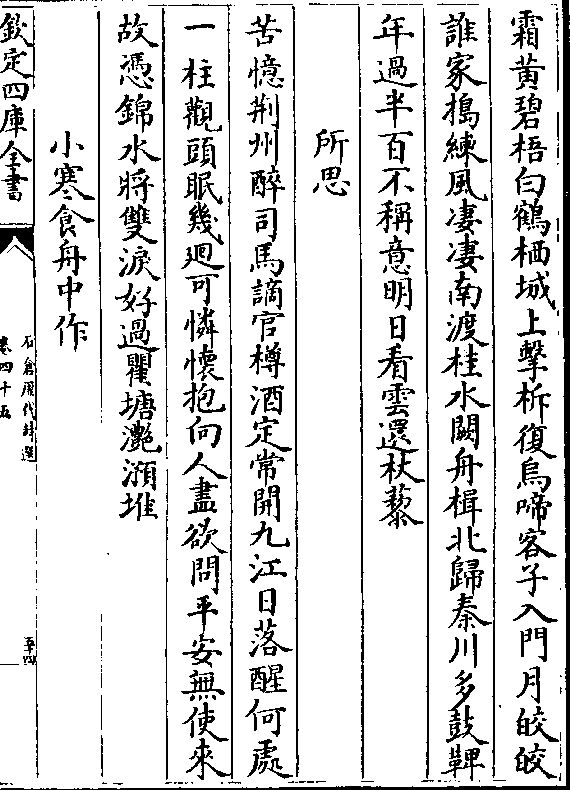 霜黄碧梧白鶴栖城上擊柝復烏啼客子入門月皎皎
誰家搗練風凄凄南渡桂水闕舟楫北歸秦川多鼓鞞
年過半百不稱意明日看雲還杖藜
所思
苦憶荆州醉司馬謫官樽酒定常開九江日落醒何處
一柱觀頭眠幾廻可憐懷抱向人盡欲問平安無使來
故憑錦水將雙淚好過瞿塘灧澦堆
小寒食舟中作
欽定四庫全書
石倉歷代詩選
卷四十五
五十四